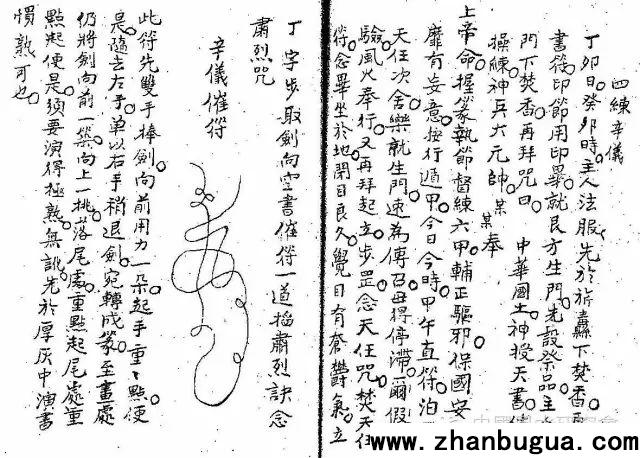 四練辛儀
丁卯日癸卯時主人法服先於祈纛下焚香
書符印節用印畢就艮方生門先設祭品主
門下焚香再拜咒曰 中華國土神授天書
操練神兵六元帥某某奉
上帝命握篆執節督練六甲輔正驅邪保國安
靡有妄意按行遁甲今日今時甲午直符泊
天任次舍樂就生門速為傳召毋得停滯爾假
驗風火奉行又再拜起立步罡念天任咒焚天任
符念畢坐於地閉目良久覺目有蒼鬱氣立
丁字步取劍向空書催符一道掐肅烈訣念
肅烈咒
辛儀催符
此符先雙手捧劍向前用力一朵起手重重點便
是隨去左手單以右手稍退劍宛轉成篆至畫處
仍將劍向前一築向上一挑落尾處重點起尾處重
點起便是須要演得極熟無訛先於厚灰中演書
慣熟可也
www.zhanbugua.com